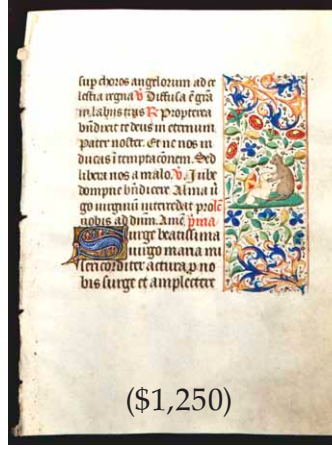 sup choros angelorum ad ce
lestia regna V Diffusa ē grā
in labiis tuis R Propterea
bn̄dixit te deus in eternum
Pater noster. Et ne nos in
ducas ī temptacōnem. Sed
libera nos a malo. V. Jube
dompne bn̄dicere Alma
go virginū intercedat pro
nobis ad dnm. Amē.
Surge beatissima
virgo maria mi
sericorditer actura p no
bis surge et amplectere
($1,250)